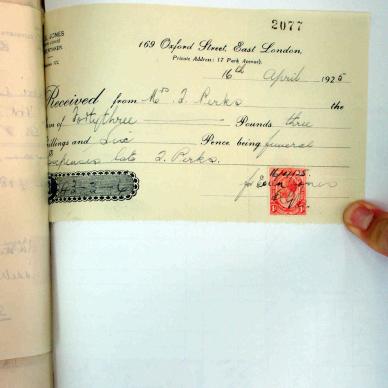 2077
JONES
169 Oxford Street East London.
Private Address: 17 Park Avenue.
16th April 1925
Received from Mrs J. Perks the
of Forty three Pounds three
llings and Six Pence being funeral
expenses late J. Perks.
£43-3-6
16/4/25
Jones